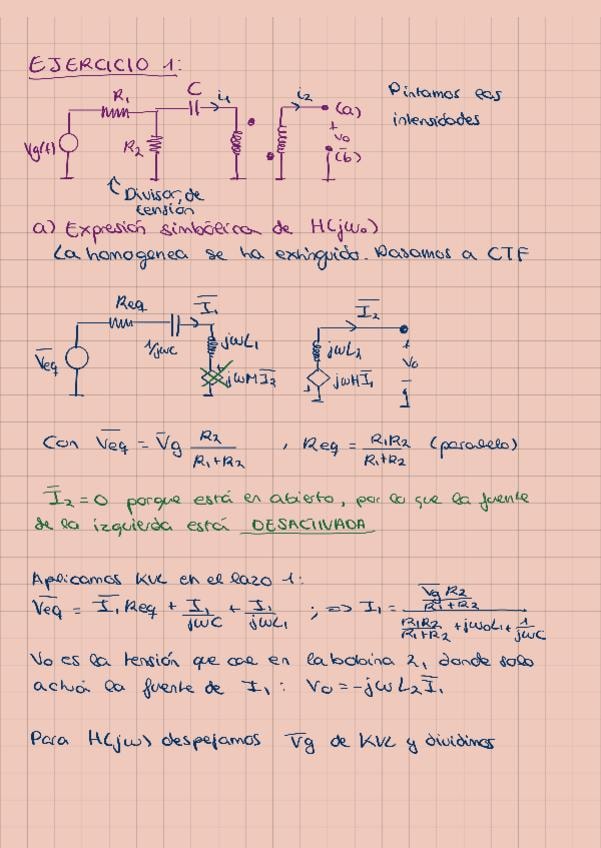 EJERCICIO 1:
R₁ C i₁ i₂ (a) Pintamos las
intensidades
Vg(t) R₂ + Vo (b)
↑ Divisor de
tensión
a) Expresión simbólica de H(jω₀)
La homogenea se ha extinguido. Pasamos a CTF
Req I̅₁ I̅₂
1/jωC jωL₁ jωL₂ +
V̅eq jωMI̅₂ jωMI̅₁ Vo -
Con V̅eq = V̅g R₂/(R₁+R₂) , Req = R₁R₂/(R₁+R₂) (paralelo)
I̅₂ = 0 porque está en abierto, por lo que la fuente
de la izquierda está DESACTIVADA
Aplicamos KVL en el lazo 1:
V̅eq = I̅₁ Req + I̅₁/jωC + I̅₁/jωL₁ ; => I₁ = (V̅g R₂/(R₁+R₂))/(R₁R₂/(R₁+R₂) + jω₀L₁ + 1/jωC)
Vo es la tensión que cae en la bobina 2, donde solo
actúa la fuente de I₁: Vo = -jωL₂I̅₁
Para H(jω) despejamos V̅g de KVL y dividimos